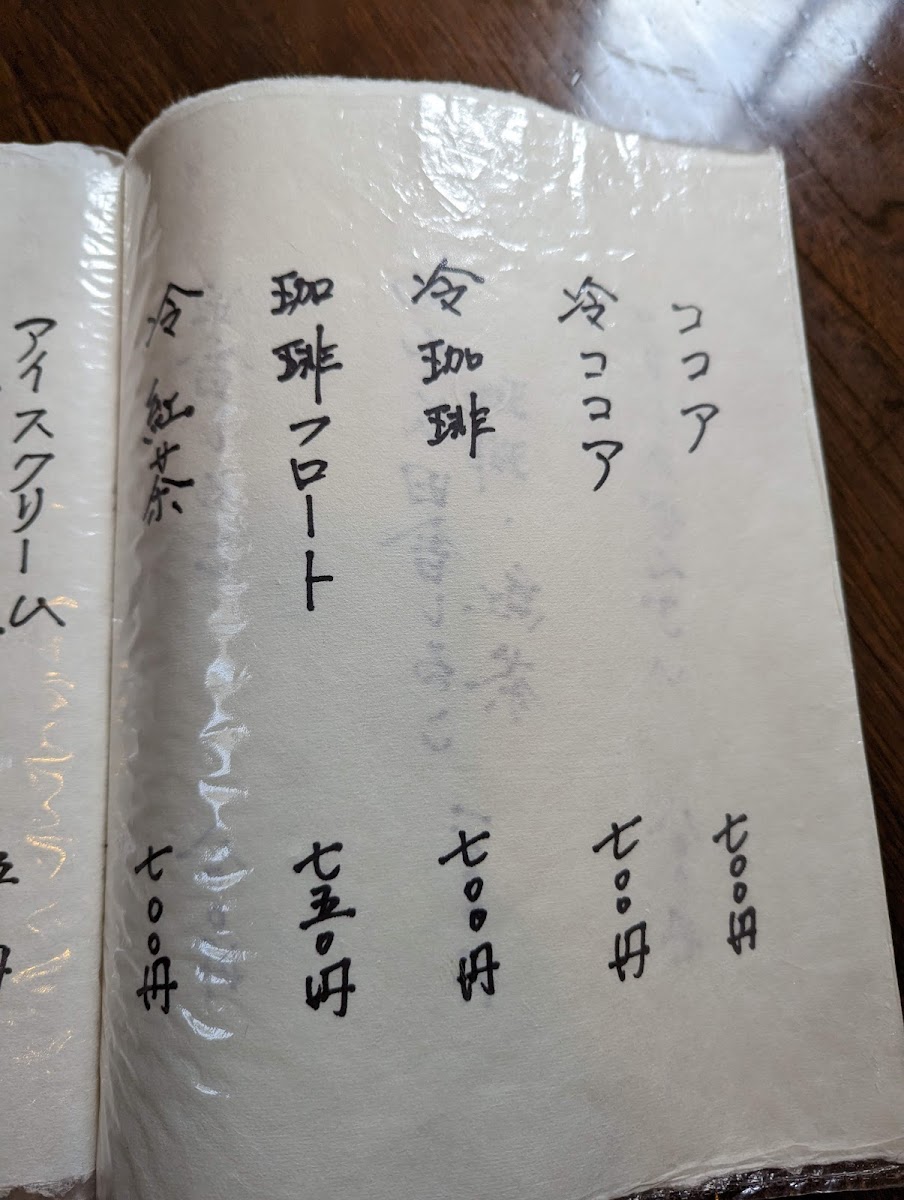 ココア 七〇〇円
冷ココア 七〇〇円
冷珈琲 七〇〇円
珈琲フロート 七五〇円
冷紅茶 七〇〇円
アイスクリーム